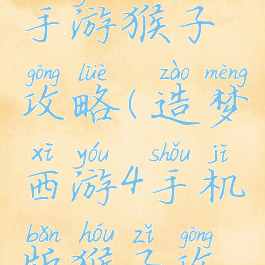 手游猴子
gōng lüè zào mèng
攻略(造梦
xī yóu shǒu jī
西游4手机
bǎn hóu zǐ gōng
版猴子攻